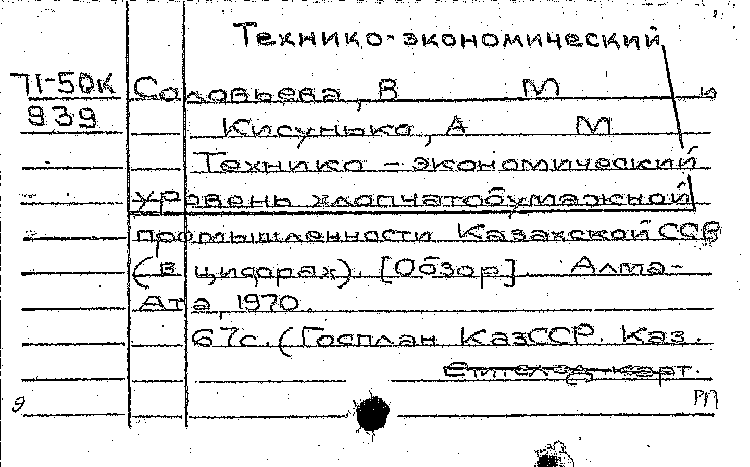 Технико-экономический
71-50К Соловьева, В М и
939 Кисунько, А М
Технико-экономический
уровень хлопчатобумажной
промышленности Казахской ССР
(в цифрах). [Обзор]. Алма-
Ата, 1970.
67с. (Госплан КазССР. Каз.
карт.
9 РП